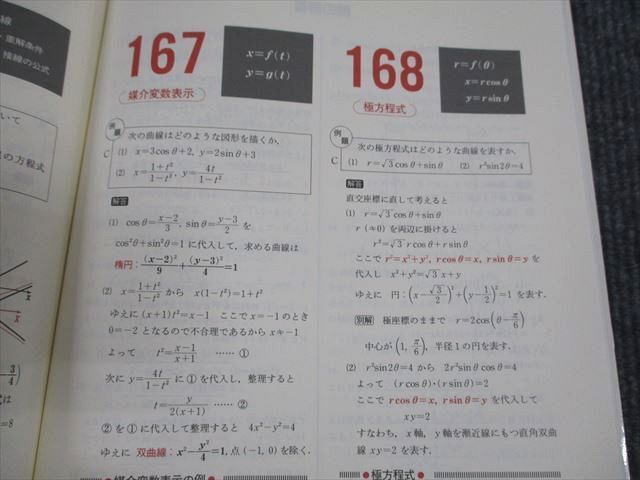 線
・重解条件
接線の公式
いて
の方程式
167
媒介変数表示
x=f(t)
y=g(t)
例題
次の曲線はどのような図形を描くか．
C (1) x=3cosθ+2, y=2sinθ+3
(2) x=\frac{1+t²}{1−t²}, y=\frac{4t}{1−t²}
解答
(1) cosθ=\frac{x−2}{3}, sinθ=\frac{y−3}{2} を
cos²θ+sin²θ=1 に代入して，求める曲線は
楕円：\frac{(x−2)²}{9}+\frac{(y−3)²}{4}=1
(2) x=\frac{1+t²}{1−t²} から x(1−t²)=1+t²
ゆえに (x+1)t²=x−1 ここで x=−1 のとき
0=−2 となるので不合理であるから x≠−1
よって t²=\frac{x−1}{x+1} …… ①
次に y=\frac{4t}{1−t²} に ① を代入し，整理すると
t=\frac{y}{2(x+1)} …… ②
② を ① に代入して整理すると 4x²−y²=4
ゆえに 双曲線：x²−\frac{y²}{4}=1, 点(−1, 0)を除く．
●媒介変数表示の例●
168
極方程式
r=f(θ)
x=r cosθ
y=r sinθ
例題
次の極方程式はどのような曲線を表すか．
C (1) r=√3 cosθ+sinθ (2) r²sin2θ=4
解答
直交座標に直して考えると
(1) r=√3 cosθ+sinθ
r (≠0) を両辺に掛けると
r²=√3 r cosθ+r sinθ
ここで r²=x²+y², r cosθ=x, r sinθ=y を
代入し x²+y²=√3 x+y
ゆえに 円：(x−\frac{√3}{2})²+(y−\frac{1}{2})²=1 を表す．
別解 極座標のままで r=2cos(θ−\frac{π}{6})
中心が (1, \frac{π}{6}), 半径1の円を表す．
(2) r²sin2θ=4 から 2r²sinθ cosθ=4
よって (r cosθ)・(r sinθ)=2
ここで r cosθ=x, r sinθ=y を代入して
xy=2
すなわち，x軸，y軸を漸近線にもつ直角双曲
線 xy=2 を表す．
●極方程式●